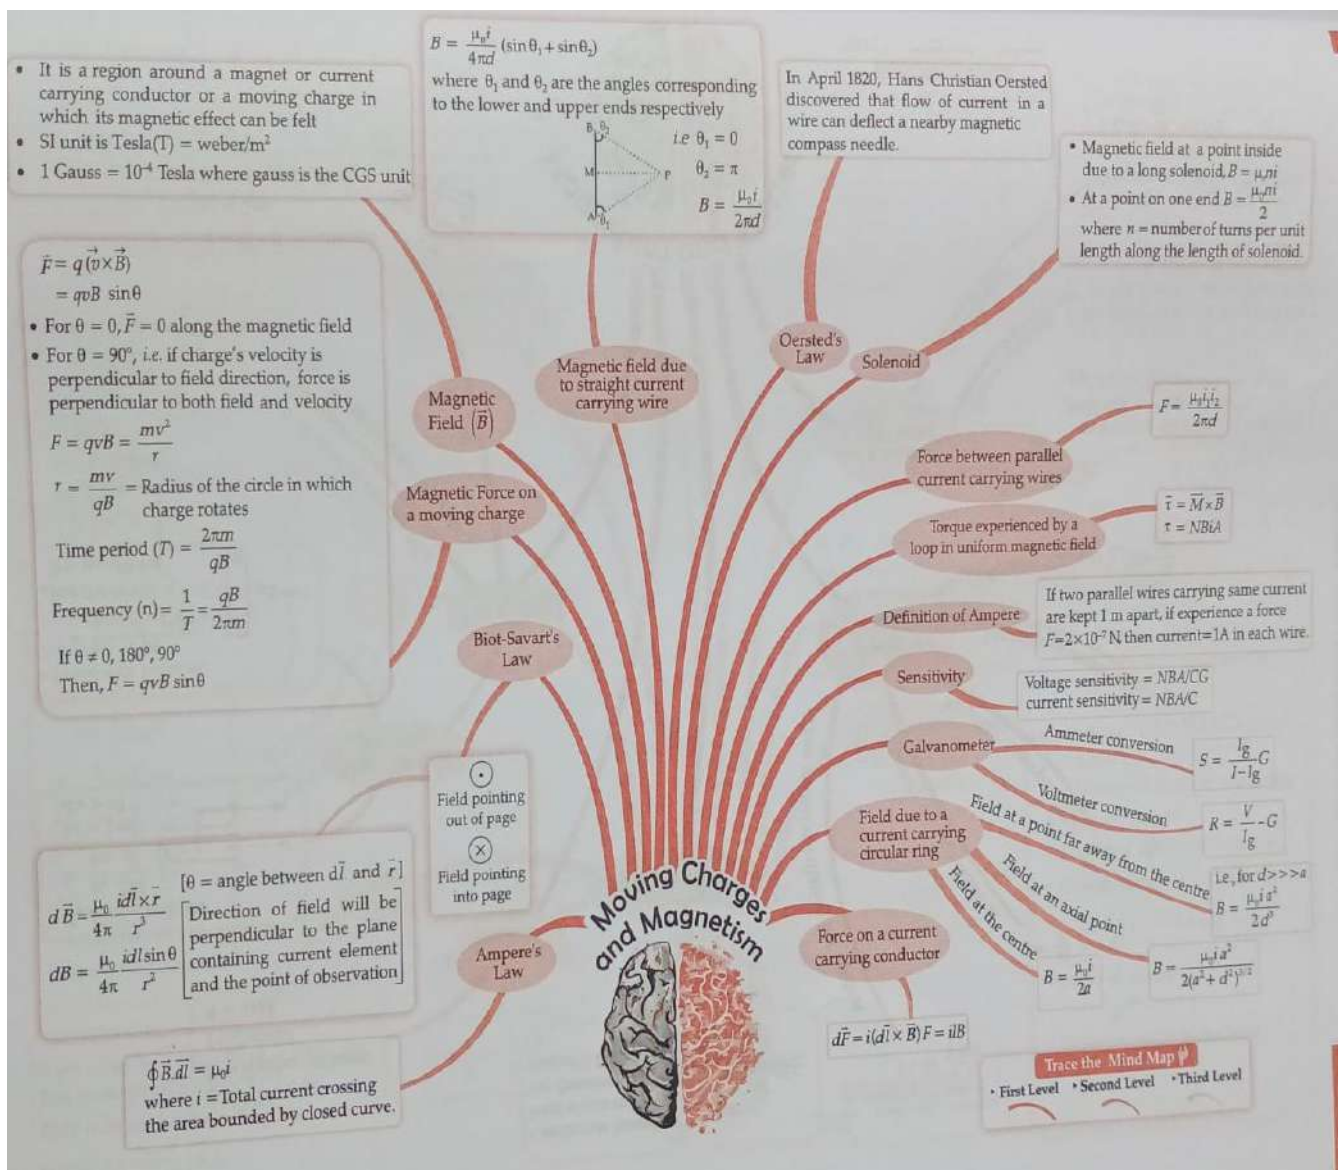 • It is a region around a magnet or current
carrying conductor or a moving charge in
which its magnetic effect can be felt
• SI unit is Tesla(T) = weber/m²
• 1 Gauss = 10⁻⁴ Tesla where gauss is the CGS unit
B = μ₀i/4πd (sinθ₁ + sinθ₂)
where θ₁ and θ₂ are the angles corresponding
to the lower and upper ends respectively
B θ₂
M P
A θ₁
i.e θ₁ = 0
θ₂ = π
B = μ₀i/2πd
In April 1820, Hans Christian Oersted
discovered that flow of current in a
wire can deflect a nearby magnetic
compass needle.
• Magnetic field at a point inside
due to a long solenoid, B = μ₀ni
• At a point on one end B = μ₀ni/2
where n = number of turns per unit
length along the length of solenoid.
F⃗ = q(v⃗×B⃗)
= qvB sinθ
• For θ = 0, F⃗ = 0 along the magnetic field
• For θ = 90°, i.e. if charge's velocity is
perpendicular to field direction, force is
perpendicular to both field and velocity
F = qvB = mv²/r
r = mv/qB = Radius of the circle in which
charge rotates
Time period (T) = 2πm/qB
Frequency (n) = 1/T = qB/2πm
If θ ≠ 0, 180°, 90°
Then, F = qvB sinθ
Magnetic
Field (B⃗)
Magnetic field due
to straight current
carrying wire
Oersted's
Law
Solenoid
Magnetic Force on
a moving charge
Force between parallel
current carrying wires
F = μ₀i₁i₂/2πd
Torque experienced by a
loop in uniform magnetic field
τ⃗ = M⃗×B⃗
τ = NBiA
Definition of Ampere
If two parallel wires carrying same current
are kept 1 m apart, if experience a force
F=2×10⁻⁷ N then current=1A in each wire.
Biot-Savart's
Law
Sensitivity
Voltage sensitivity = NBA/CG
current sensitivity = NBA/C
Galvanometer
Ammeter conversion
S = Ig/I−Ig G
Voltmeter conversion
R = V/Ig - G
Field pointing
out of page
Field pointing
into page
Field due to a
current carrying
circular ring
Field at a point far away from the centre
i.e., for d>>>a
B = μ₀ia²/2d³
Field at an axial point
B = μ₀ia²/2(a² + d²)³ᐟ²
Field at the centre
B = μ₀i/2a
dB⃗ = μ₀/4π idl⃗×r⃗/r³
[θ = angle between dl⃗ and r⃗]
dB = μ₀/4π idlsinθ/r²
[Direction of field will be
perpendicular to the plane
containing current element
and the point of observation]
Ampere's
Law
∮B⃗.dl⃗ = μ₀i
where i = Total current crossing
the area bounded by closed curve.
Moving Charges
and Magnetism
Force on a current
carrying conductor
dF⃗ = i(dl⃗ × B⃗) F = ilB
Trace the Mind Map
• First Level • Second Level • Third Level